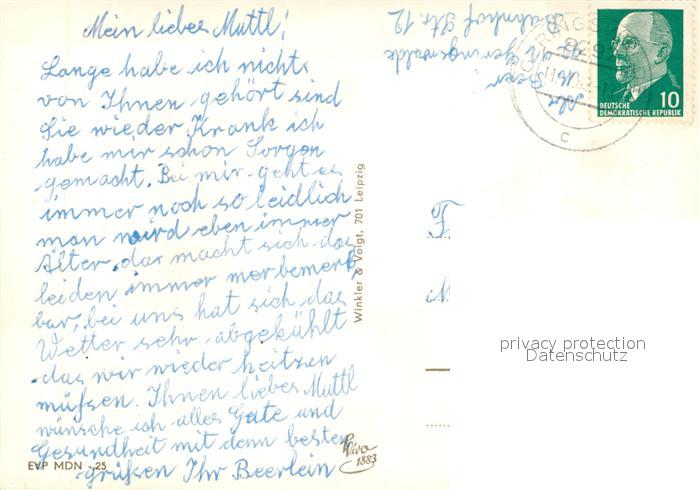 Mein liebes Muttl!
Lange habe ich nichts
von Ihnen gehört sind
Sie wieder Krank ich
habe mir schon Sorgen
gemacht. Bei mir geht es
immer noch so leidlich
man wird eben immer
Älter, dar macht sich das
leiden immer mer bemerk
bar, bei uns hat sich das
Wetter sehr abgekühlt
das wir wieder heitzen
müßen. Ihnen liebes Muttl
wünsche ich alles Gute und
Gesundheit mit denn besten
grüßen Ihr Beerlein
EVP MDN -,25
Vivo
1883
Winkler & Voigt, 701 Leipzig
Beer
Geringswalde
Bahnhof Str. 12
9292
10
DEUTSCHE
DEMOKRATISCHE REPUBLIK
c
privacy protection
Datenschutz